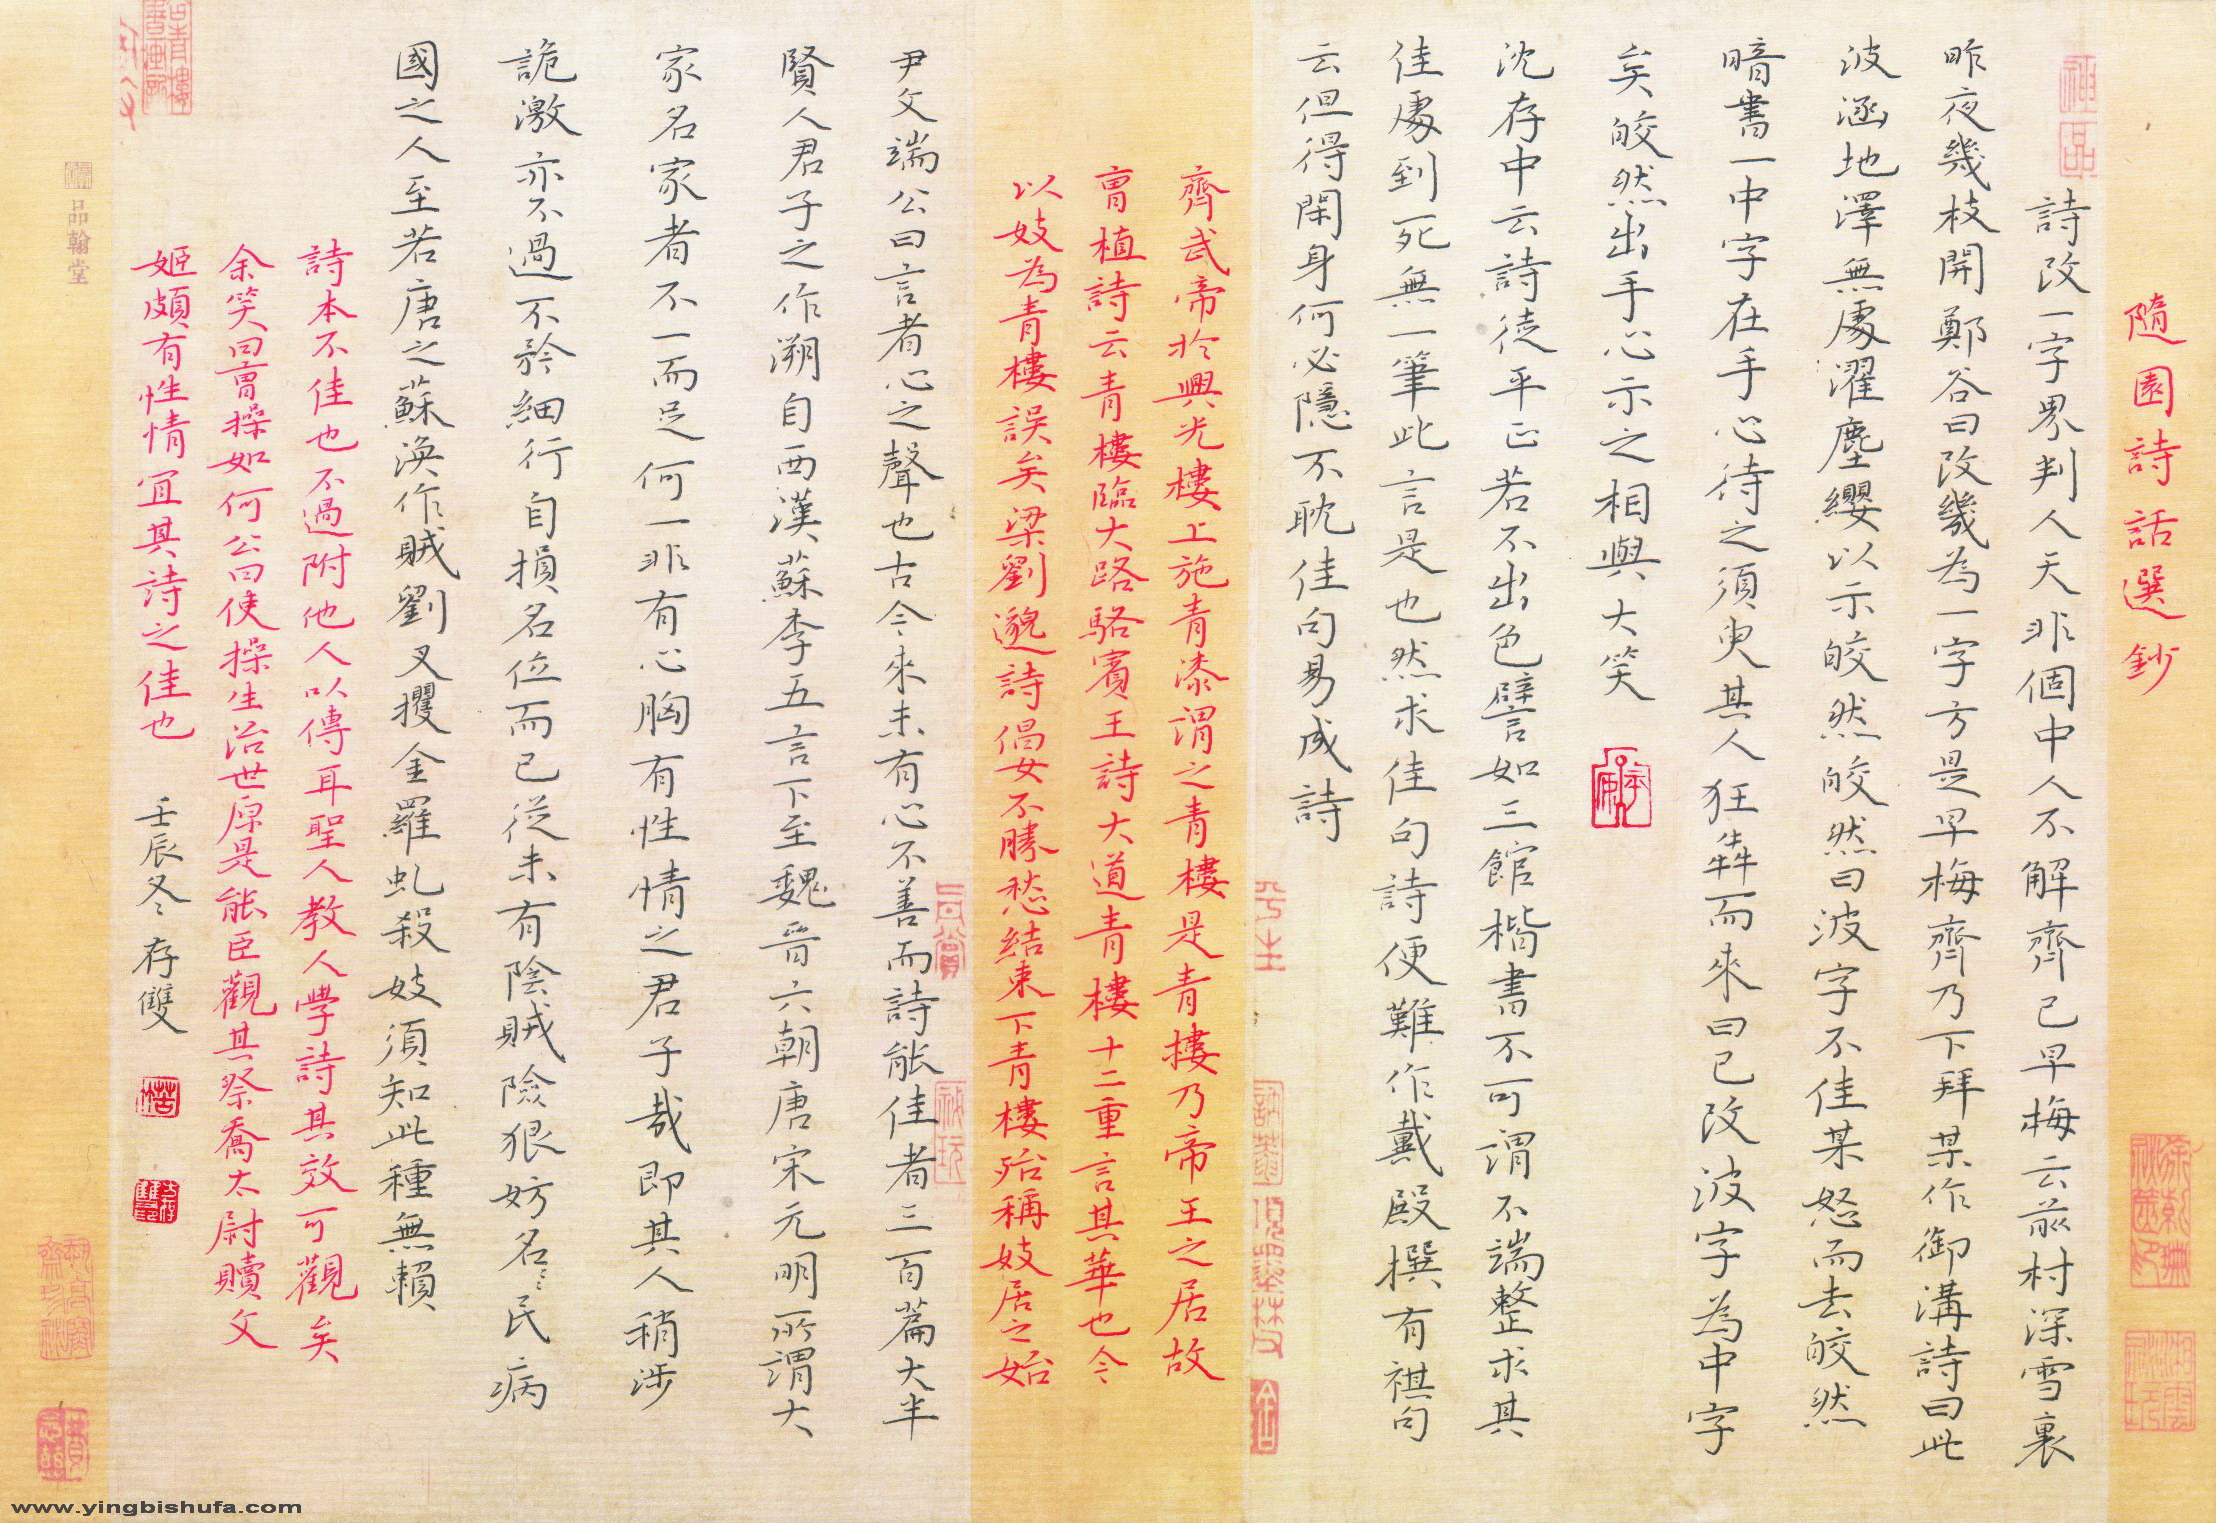 隨園詩話選鈔
詩改一字界判人天非個中人不解齊己早梅云前村深雪裏
昨夜幾枝開鄭谷曰改幾為一字方是早梅齊乃下拜某作御溝詩曰此
波涵地澤無處濯塵纓以示皎然皎然曰波字不佳某怒而去皎然
暗書一中字在手心待之須臾其人狂犇而來曰已改波字為中字
矣皎然出手心示之相與大笑
沈存中云詩徒平正若不出色譬如三館楷書不可謂不端整求其
佳處到死無一筆此言是也然求佳句詩便難作戴殿撰有祺句
云但得閑身何必隱不耽佳句易成詩
齊武帝於興光樓上施青漆謂之青樓是青樓乃帝王之居故
曹植詩云青樓臨大路駱賓王詩大道青樓十二重言其華也今
以妓為青樓誤矣梁劉邈詩倡女不勝愁結束下青樓殆稱妓居之始
尹文端公曰言者心之聲也古今來未有心不善而詩能佳者三百篇大半
賢人君子之作溯自西漢蘇李五言下至魏晉六朝唐宋元明所謂大
家名家者不一而足何一非有心胸有性情之君子哉即其人稍涉
詭激亦不過不矜細行自損名位而已從未有陰賊險狠妨名〻民病
國之人至若唐之蘇渙作賊劉叉攫金羅虬殺妓須知此種無賴
詩本不佳也不過附他人以傳耳聖人教人學詩其效可觀矣
余笑曰曹操如何公曰使操生治世原是能臣觀其祭喬太尉贖文
姬頗有性情宜其詩之佳也
壬辰冬 存雙
品翰堂
www.yingbishufa.com